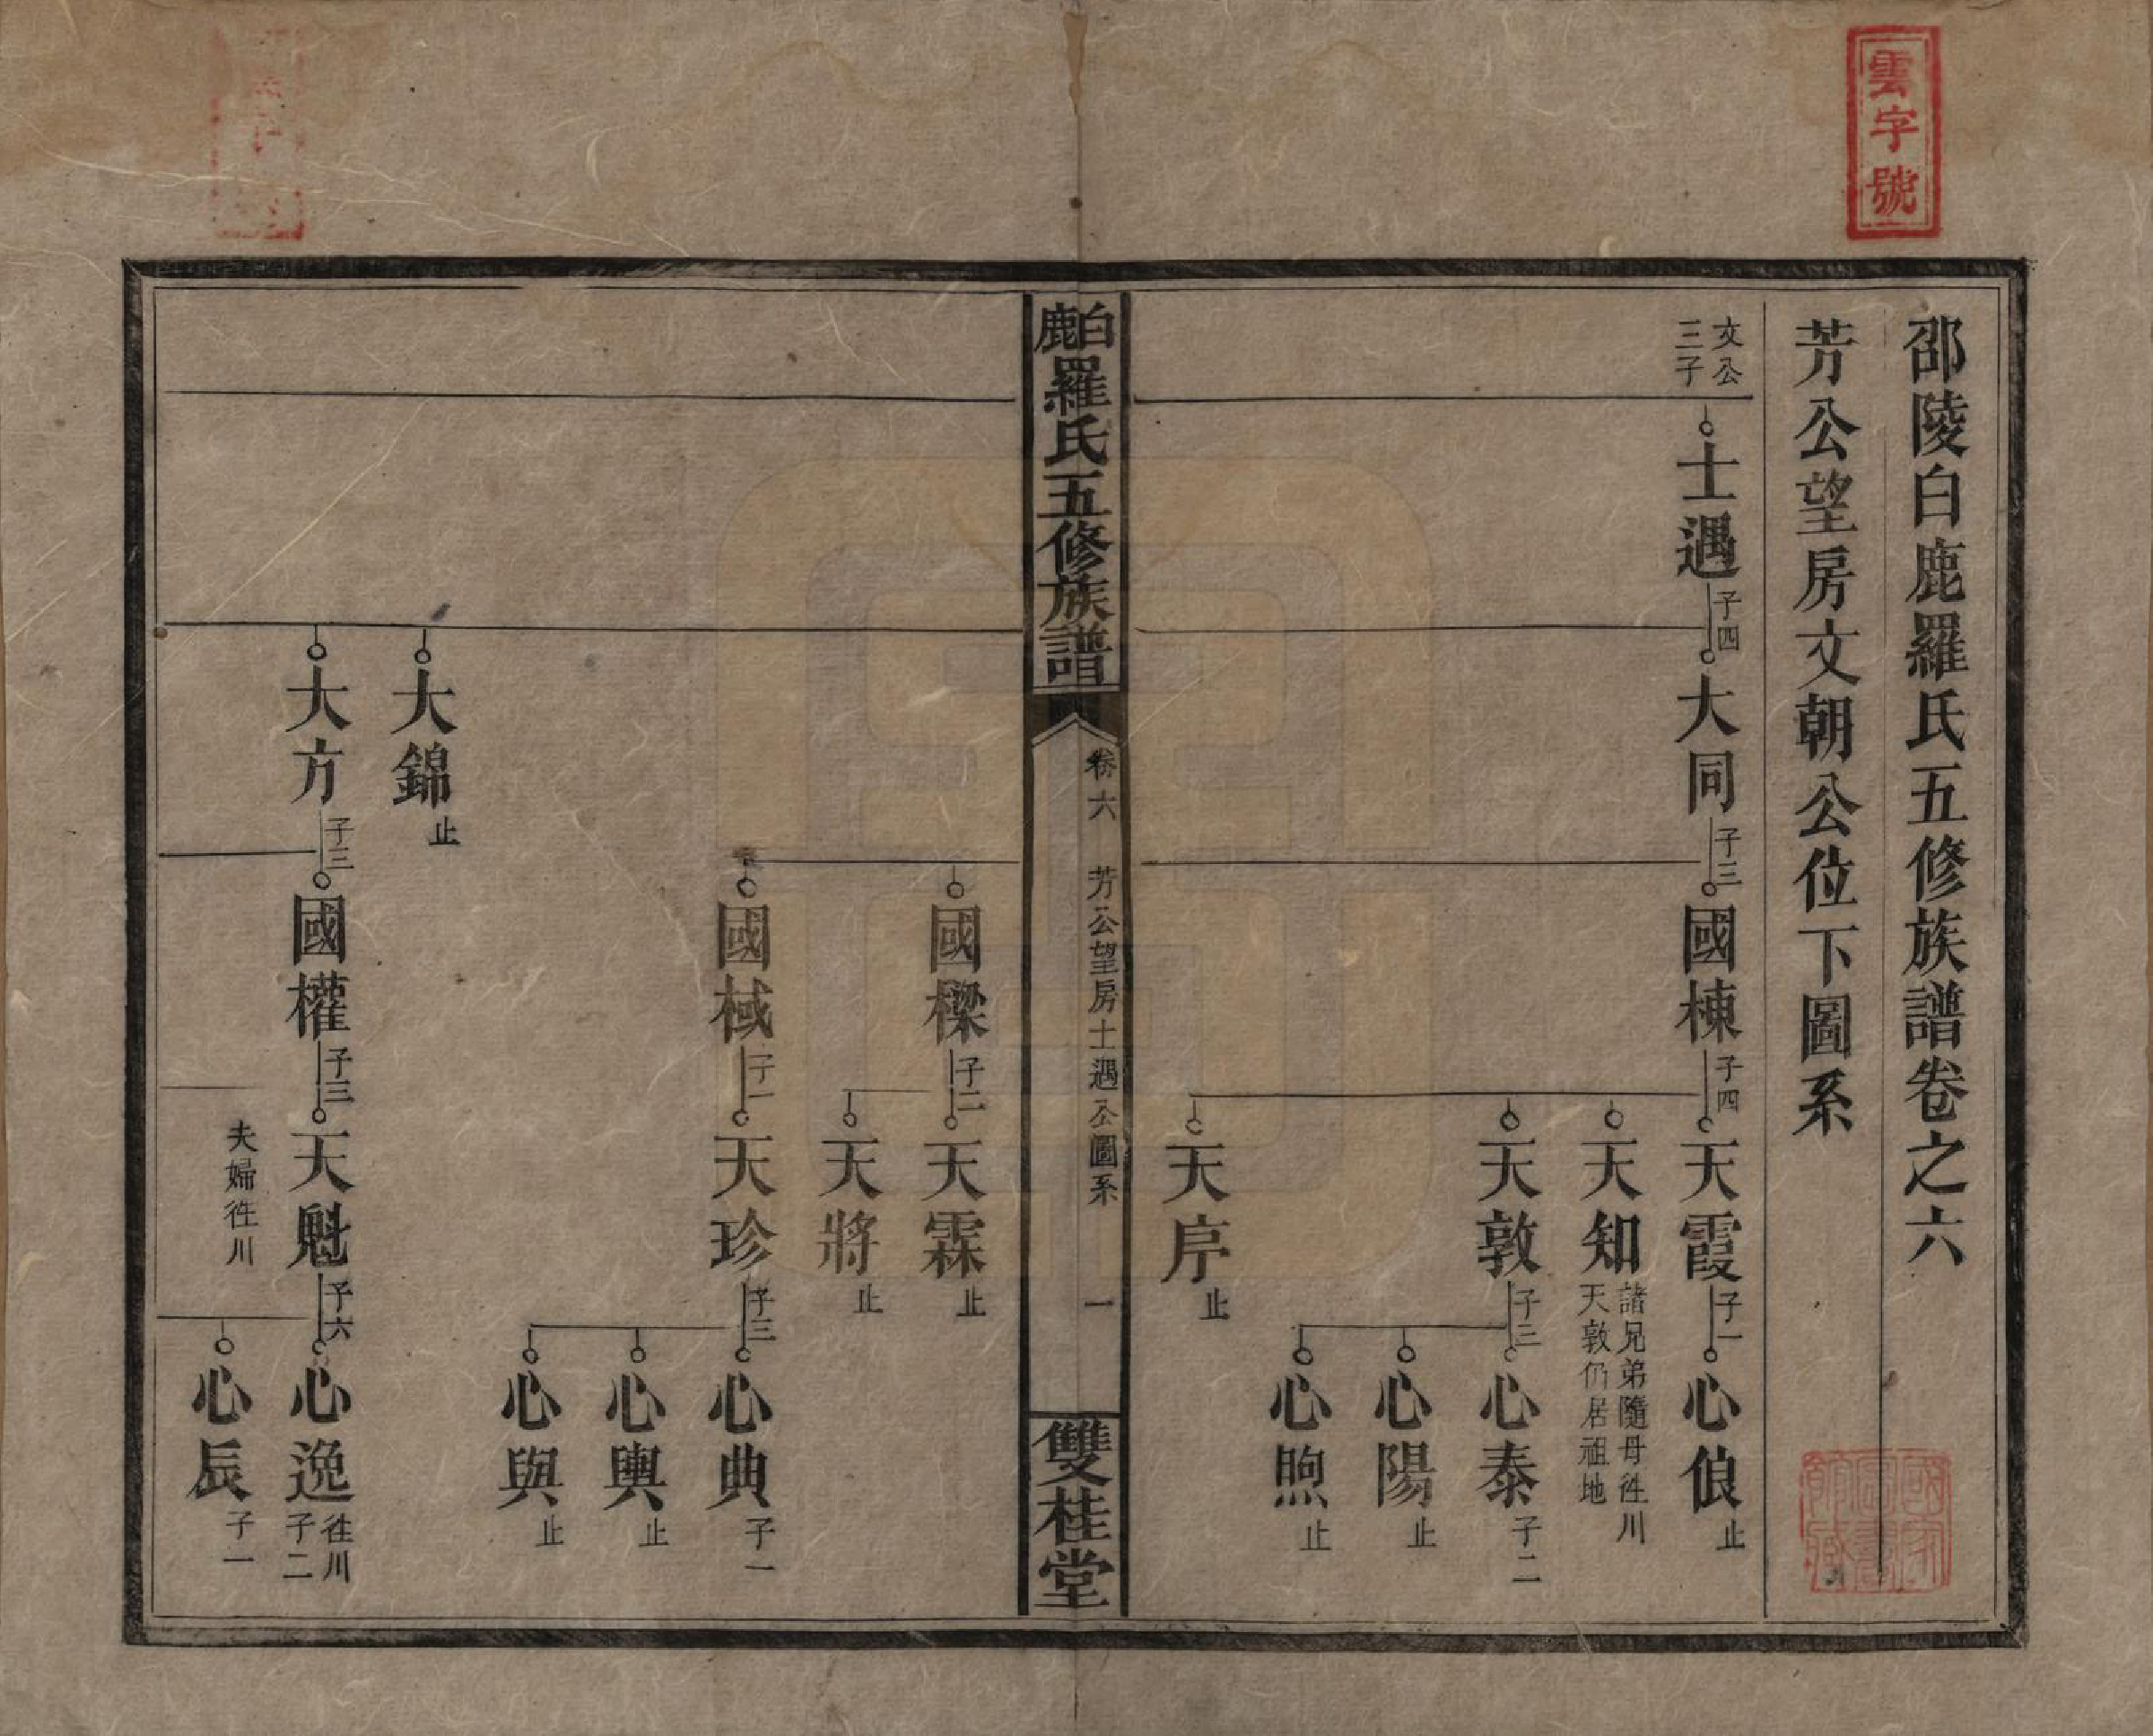 雲字號
邵陵白鹿羅氏五修族譜卷之六
芳公望房文朝公位下圖系
文公
三子
士遇 子四
大同 子三
國棟 子四
天霞 子一
心俍 止
天知
諸兄弟隨母徃川
天敦仍居祖地
天敦 子三
心泰 子二
心陽 止
心煦 止
天序 止
白鹿羅氏五修族譜
卷六 芳公望房士遇公圖系 一
雙桂堂
國樑 子二
天霖 止
天將 止
國棫 子一
天珍 子三
心典 子一
心輿 止
心與 止
大錦 止
大方 子三
國權 子三
天魁 子六
心逸
徃川
子二
夫婦徃川
心辰 子一